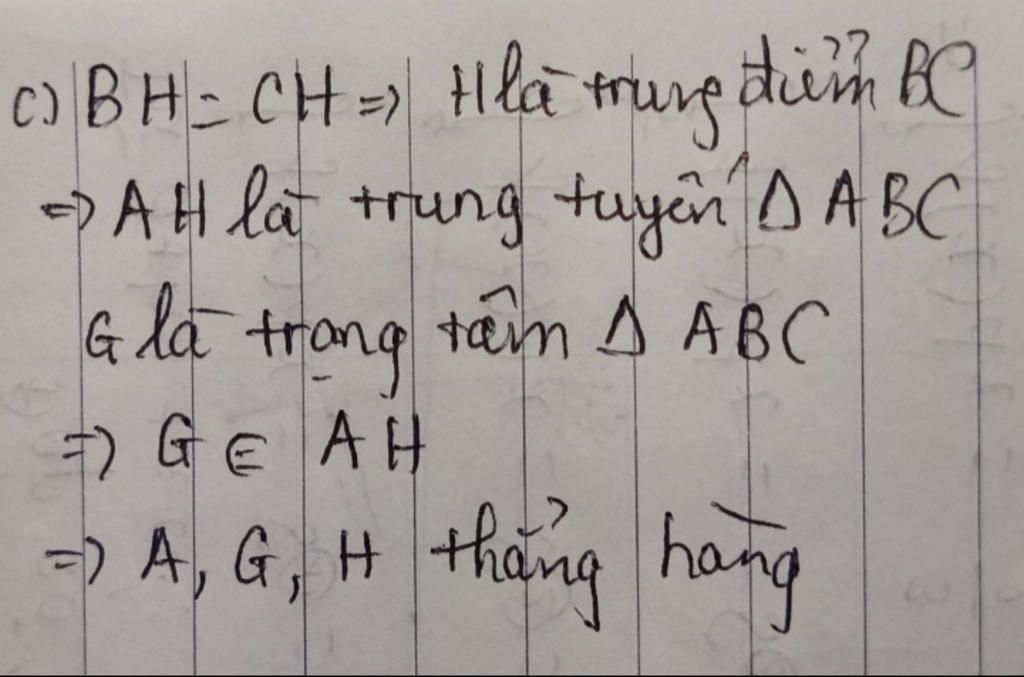 c) BH = CH => H là trung điểm BC
=> AH là trung tuyến Δ ABC
G là trọng tâm Δ ABC
=> G ∈ AH
=> A, G, H thẳng hàng